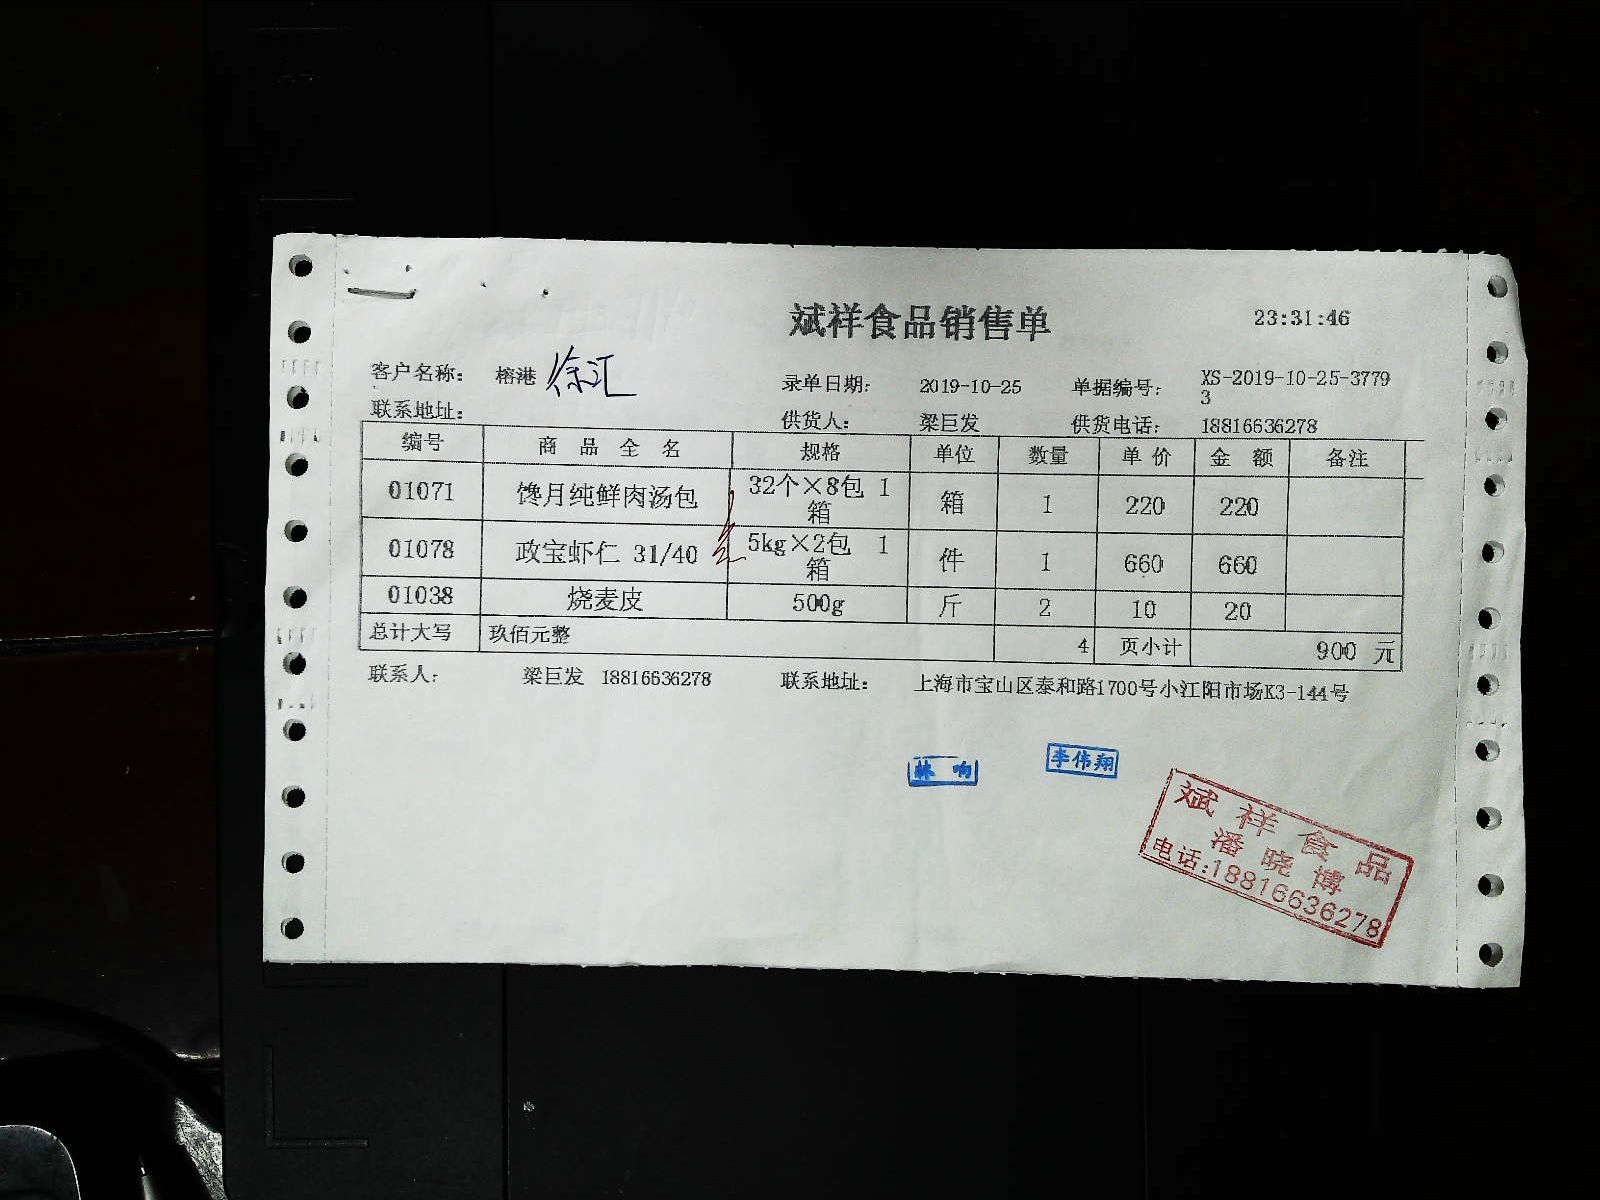 斌祥食品销售单 23:31:46
客户名称: 榕港 徐汇 录单日期: 2019-10-25 单据编号: XS-2019-10-25-3779
3
联系地址: 供货人: 梁巨发 供货电话: 18816636278
编号 商品全名 规格 单位 数量 单价 金额 备注
01071 馋月纯鲜肉汤包 32个×8包 1
箱 箱 1 220 220
01078 政宝虾仁 31/40 5kg×2包 1
箱 件 1 660 660
01038 烧麦皮 500g 斤 2 10 20
总计大写 玖佰元整 4 页小计 900 元
联系人: 梁巨发 18816636278 联系地址: 上海市宝山区泰和路1700号小江阳市场K3-144号
林响 李伟翔
斌祥食品
潘晓博
电话:18816636278